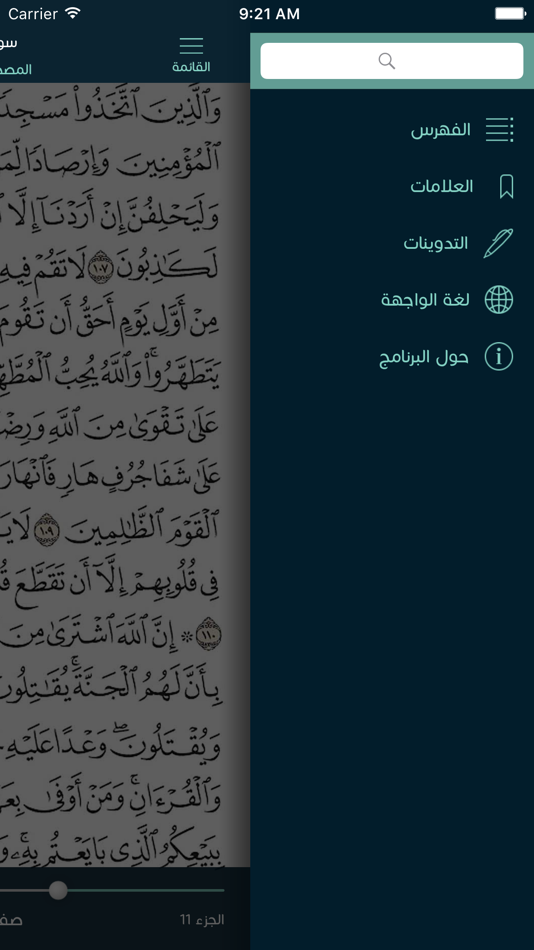 Carrier 9:21 AM
القائمة
الفهرس
العلامات
التدوينات
لغة الواجهة
حول البرنامج
وَٱلَّذِينَ ٱتَّخَذُوا۟ مَسْجِدًا
ٱلْمُؤْمِنِينَ وَإِرْصَادًا
وَلَيَحْلِفُنَّ إِنْ أَرَدْنَآ إِلَّا
لَكَـٰذِبُونَ ١٠٧ لَا تَقُمْ فِيهِ
مِنْ أَوَّلِ يَوْمٍ أَحَقُّ أَن تَقُومَ
يَتَطَهَّرُوا۟ۚ وَٱللَّهُ يُحِبُّ
عَلَىٰ تَقْوَىٰ مِنَ ٱللَّهِ
عَلَىٰ شَفَا جُرُفٍ هَارٍ
ٱلْقَوْمَ ٱلظَّـٰلِمِينَ ١٠٩
فِى قُلُوبِهِمْ إِلَّآ أَن تَقَطَّعَ
١١٠ ۞ إِنَّ ٱللَّهَ ٱشْتَرَىٰ مِنَ
بِأَنَّ لَهُمُ ٱلْجَنَّةَۚ
وَيُقْتَلُونَۖ وَعْدًا عَلَيْهِ
وَٱلْقُرْءَانِۚ وَمَنْ أَوْفَىٰ
بِبَيْعِكُمُ ٱلَّذِى بَايَعْتُم بِهِۦۚ
الجزء 11